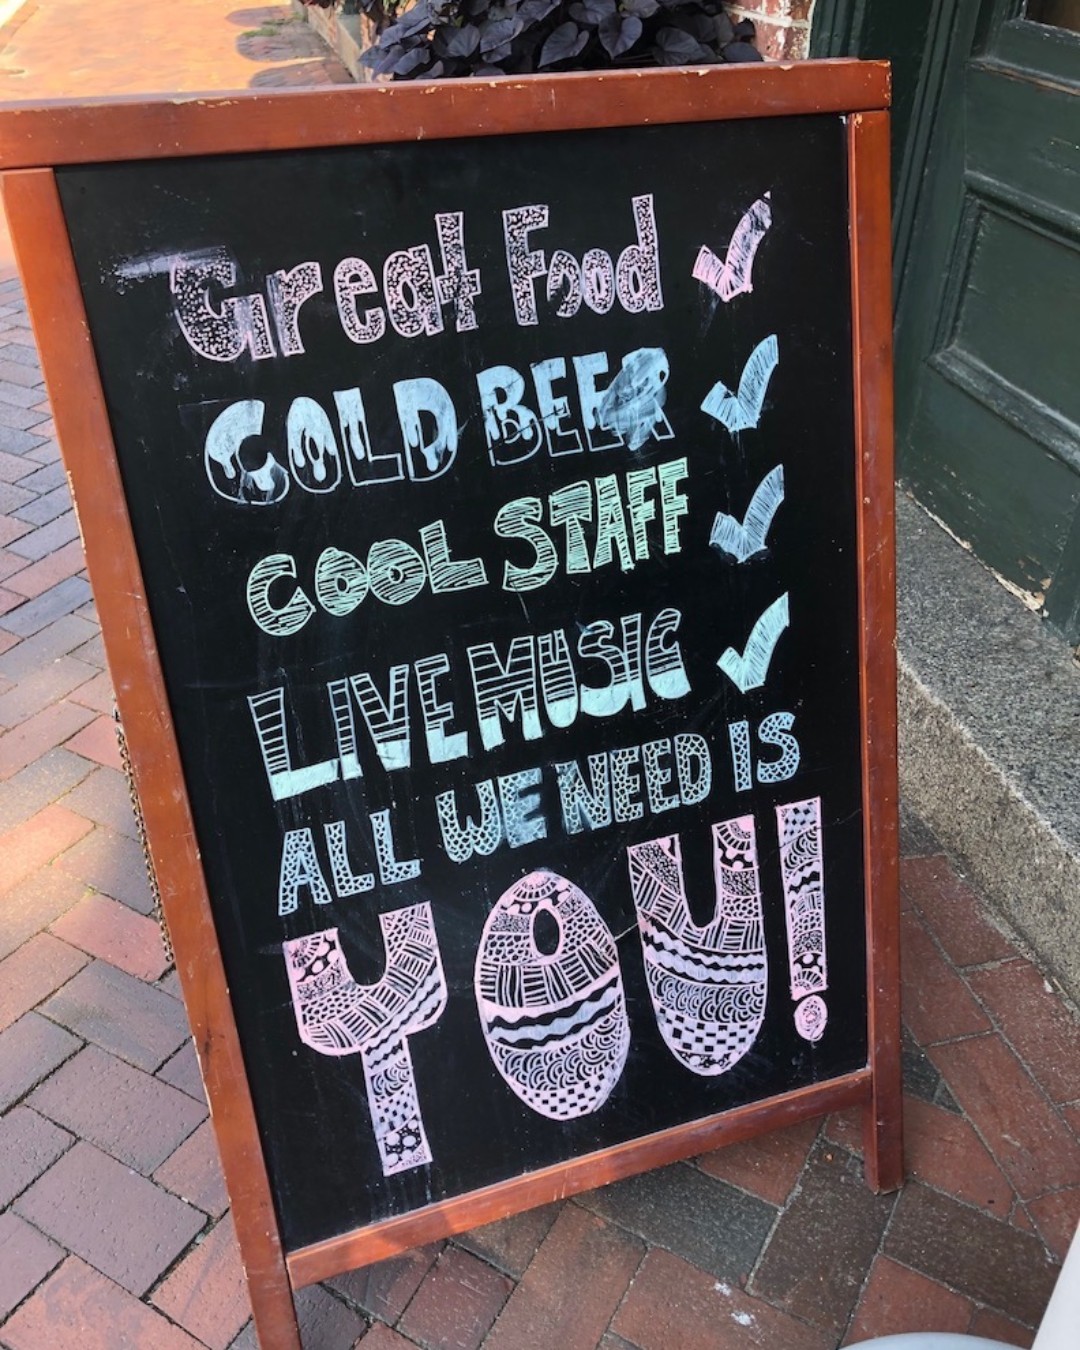 Great Food ✓
COLD BEER ✓
COOL STAFF ✓
LIVE MUSIC ✓
ALL WE NEED IS
YOU!